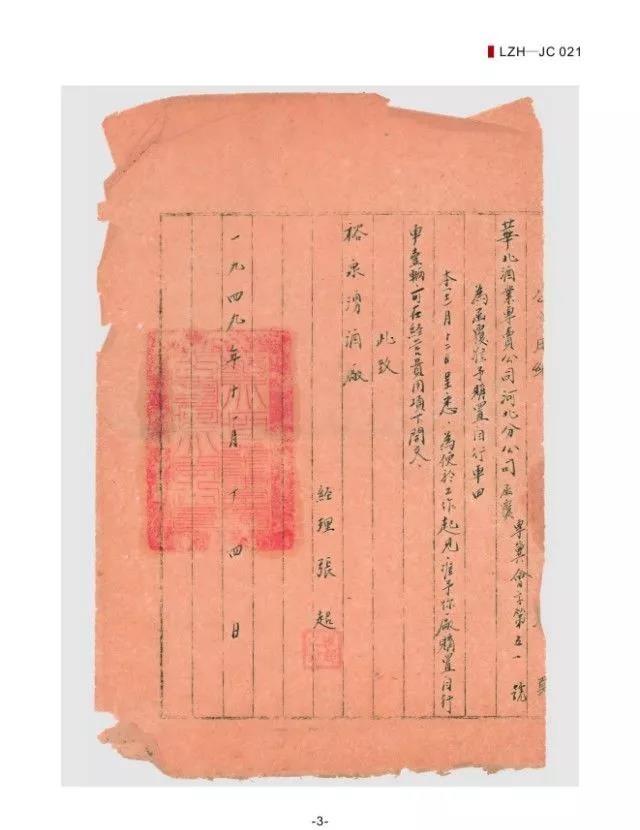 LZH—JC 021
華北酒業專賣公司河北分公司函覆 專冀會字第五一號
為函覆准予購置自行車由
本(三)月十二日呈悉,為便於工作起見,准予你廠購置自行
車壹輛,可在經營費用項下開支、
此致
裕泉湧酒廠
經理張超
一九四九年十一月十四日
-3-